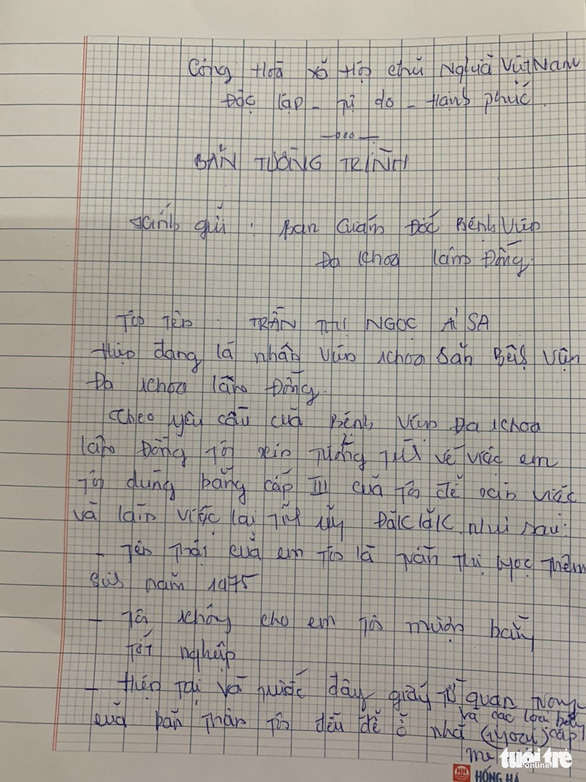 Cộng Hoà Xã Hội Chủ Nghĩa Việt Nam
Độc lập - Tự do - Hạnh phúc
BẢN TƯỜNG TRÌNH
Kính gửi: Ban Giám Đốc Bệnh Viện
Đa khoa Lâm Đồng.
Tôi tên: TRẦN THỊ NGỌC ÁI SA
Hiện đang là nhân viên khoa Sản Bệnh viện
Đa khoa Lâm Đồng.
Theo yêu cầu của Bệnh Viện Đa khoa
Lâm Đồng tôi xin tường trình về việc em
tôi dùng bằng cấp III của tôi để xin việc
và làm việc tại Tỉnh ủy ĐăkLăk như sau:
- Tên thật của em tôi là Trần Thị Ngọc Thêm
Sinh năm 1975
- Tôi không cho em tôi mượn bằng
tốt nghiệp
- Hiện tại và trước đây giấy tờ quan trọng
và các loại bằng
của bản thân tôi đều để ở nhà
tuổi trẻ
online
HỒNG HÀ